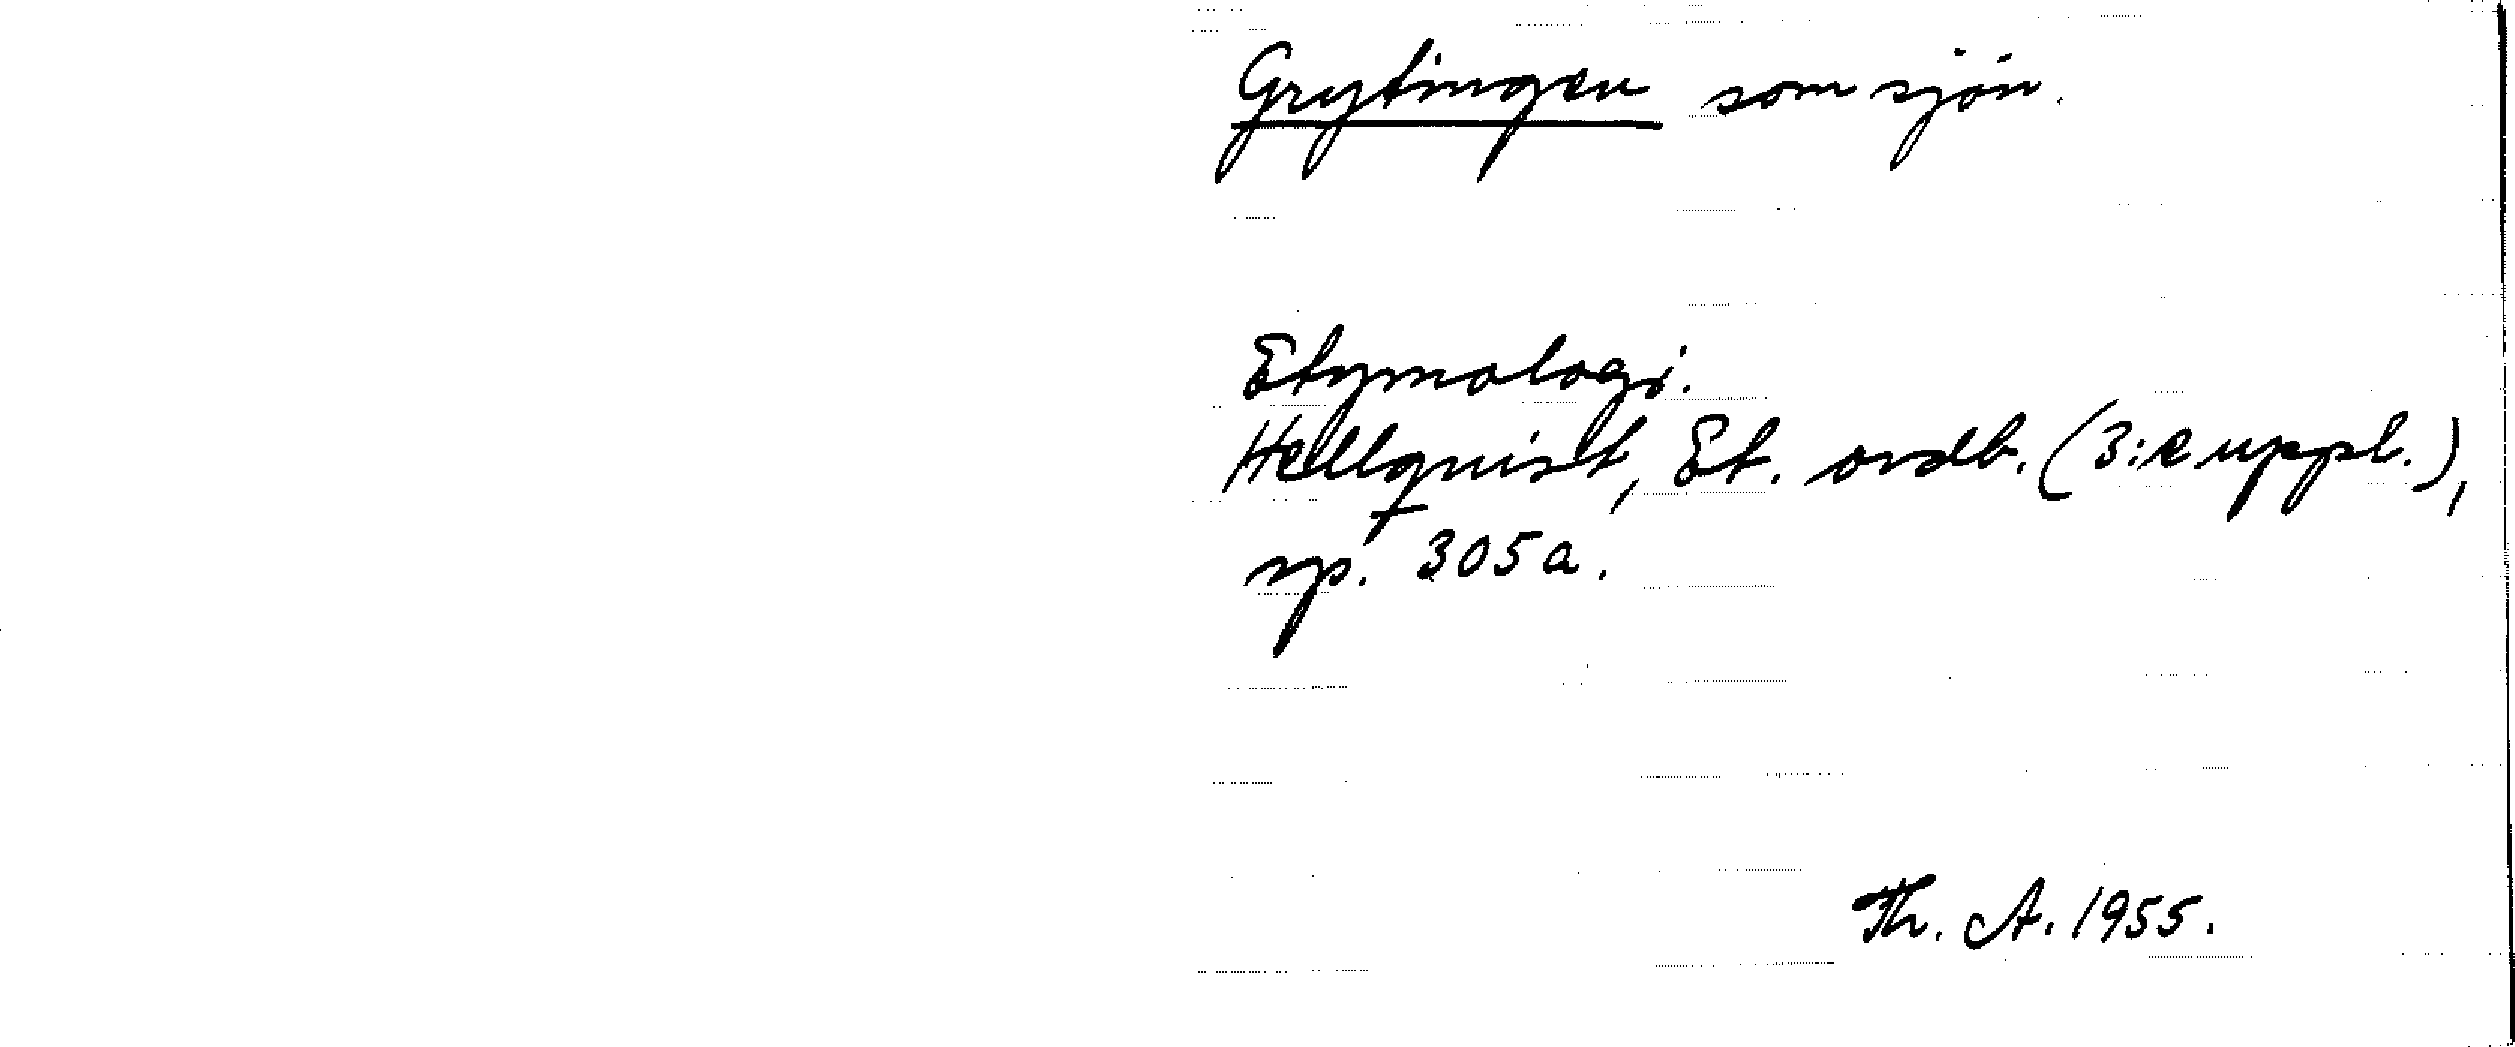 Grytingen som sjön.
Etymologi.
Hellquist, Et. ordb. (3:e uppl.),
sp. 305 a.
Th. A. 1955.